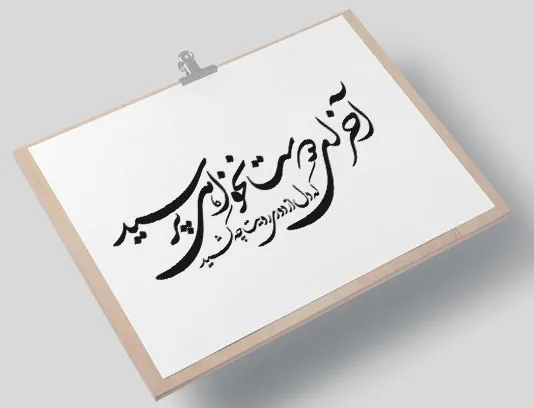 آخر ای دوست نخواهی پرسید
که دل از دوری رویت چه کشید